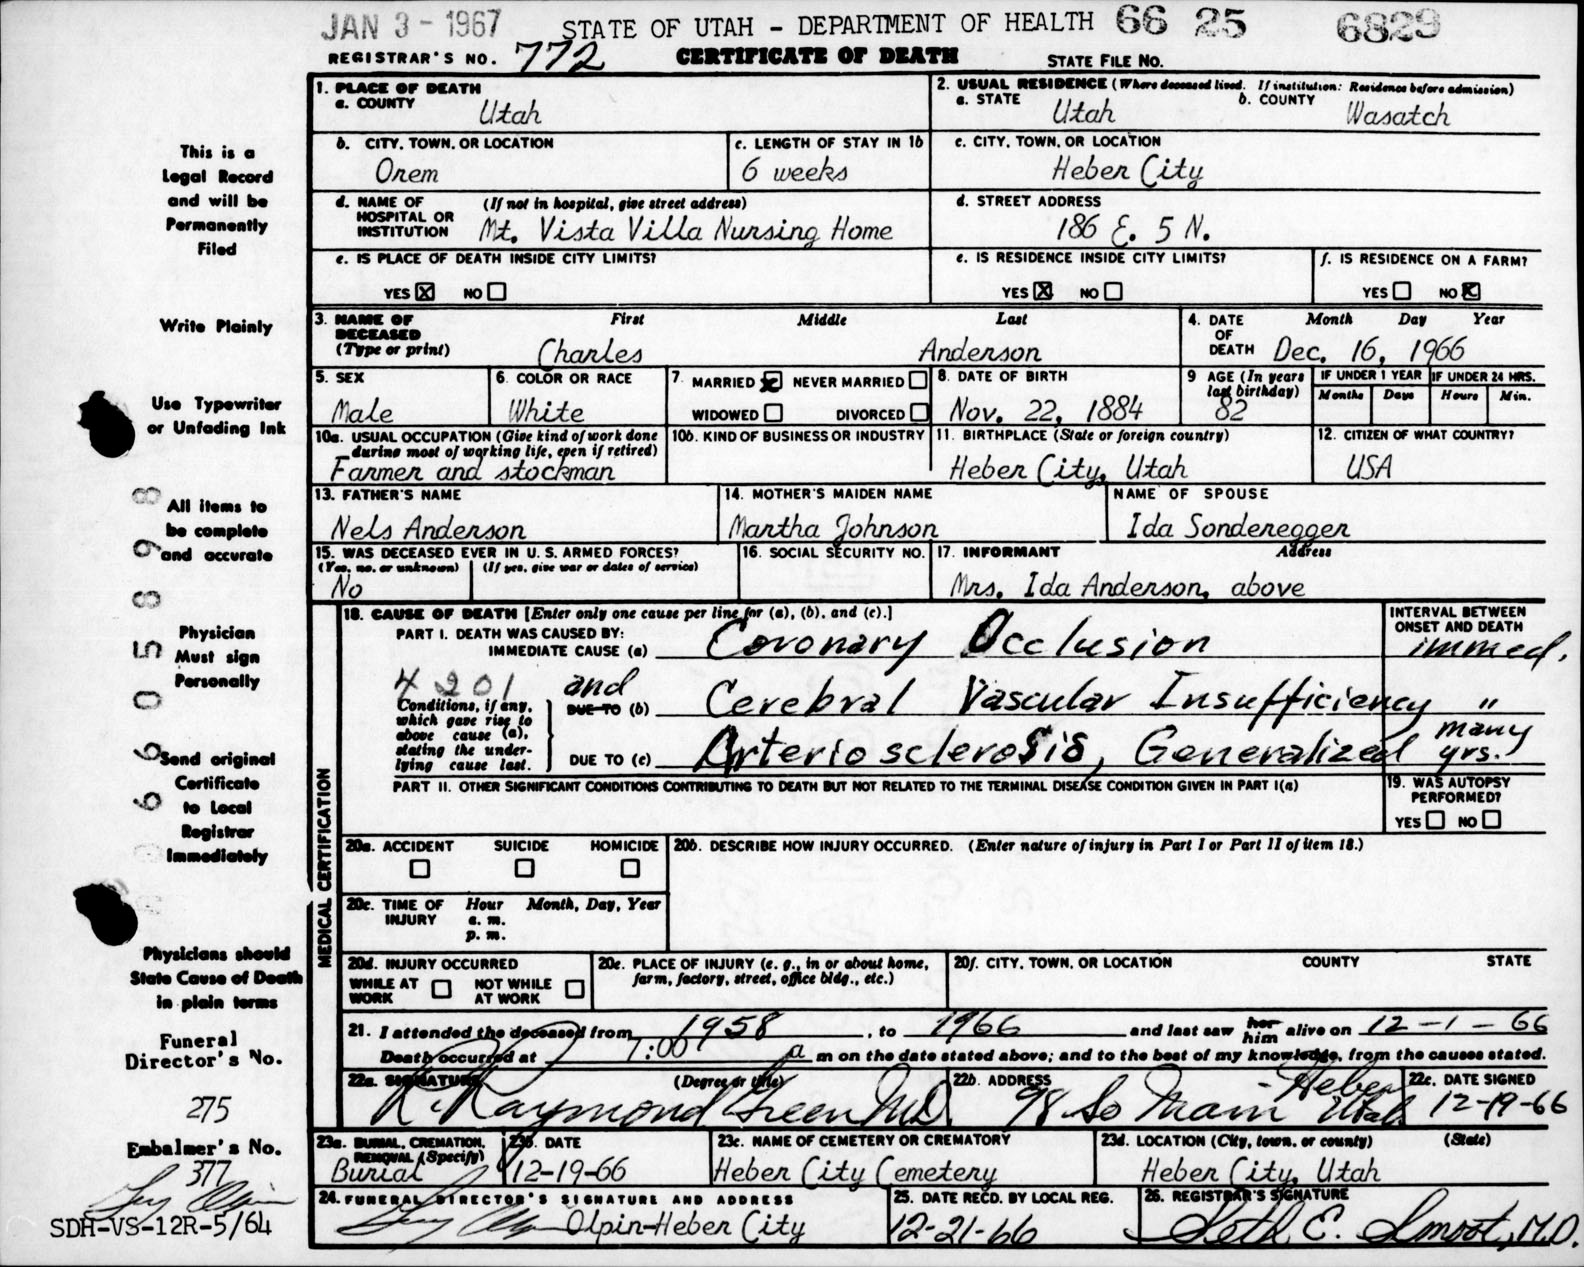 JAN 3 - 1967 STATE OF UTAH - DEPARTMENT OF HEALTH 66 25 6829
REGISTRAR'S NO. 772 CERTIFICATE OF DEATH STATE FILE NO.
This is a
Legal Record
and will be
Permanently
Filed
Write Plainly
Use Typewriter
or Unfading Ink
All items to
be complete
and accurate
Physician
Must sign
Personally
Send original
Certificate
to Local
Registrar
Immediately
Physicians should
State Cause of Death
in plain terms
Funeral
Director's No.
275
Embalmer's No.
377
SDH-VS-12R-5/64
1. PLACE OF DEATH
a. COUNTY Utah
2. USUAL RESIDENCE (Where deceased lived. If institution: Residence before admission)
a. STATE Utah b. COUNTY Wasatch
b. CITY, TOWN, OR LOCATION Orem
c. LENGTH OF STAY IN 1b 6 weeks
c. CITY, TOWN, OR LOCATION Heber City
d. NAME OF HOSPITAL OR INSTITUTION (If not in hospital, give street address) Mt. Vista Villa Nursing Home
d. STREET ADDRESS 186 E. 5 N.
e. IS PLACE OF DEATH INSIDE CITY LIMITS? YES X NO
e. IS RESIDENCE INSIDE CITY LIMITS? YES X NO
f. IS RESIDENCE ON A FARM? YES NO X
3. NAME OF DECEASED (Type or print) First Middle Last
Charles Anderson
4. DATE OF DEATH Month Day Year
Dec. 16, 1966
5. SEX Male
6. COLOR OR RACE White
7. MARRIED X NEVER MARRIED
WIDOWED DIVORCED
8. DATE OF BIRTH Nov. 22, 1884
9 AGE (In years last birthday) 82
IF UNDER 1 YEAR Months Days
IF UNDER 24 HRS. Hours Min.
10a. USUAL OCCUPATION (Give kind of work done during most of working life, even if retired)
Farmer and stockman
10b. KIND OF BUSINESS OR INDUSTRY
11. BIRTHPLACE (State or foreign country)
Heber City, Utah
12. CITIZEN OF WHAT COUNTRY?
USA
13. FATHER'S NAME
Nels Anderson
14. MOTHER'S MAIDEN NAME
Martha Johnson
NAME OF SPOUSE
Ida Sonderegger
15. WAS DECEASED EVER IN U. S. ARMED FORCES?
(Yes, no, or unknown) (If yes, give war or dates of service)
No
16. SOCIAL SECURITY NO.
17. INFORMANT Address
Mrs. Ida Anderson, above
MEDICAL CERTIFICATION
18. CAUSE OF DEATH [Enter only one cause per line for (a), (b), and (c).]
PART I. DEATH WAS CAUSED BY:
IMMEDIATE CAUSE (a) Coronary Occlusion
INTERVAL BETWEEN ONSET AND DEATH
immed.
4201 and
Conditions, if any, which gave rise to above cause (a), stating the underlying cause last.
DUE TO (b) Cerebral Vascular Insufficiency "
DUE TO (c) Arteriosclerosis, Generalized many yrs.
PART II. OTHER SIGNIFICANT CONDITIONS CONTRIBUTING TO DEATH BUT NOT RELATED TO THE TERMINAL DISEASE CONDITION GIVEN IN PART I(a)
19. WAS AUTOPSY PERFORMED?
YES NO
20a. ACCIDENT SUICIDE HOMICIDE
20b. DESCRIBE HOW INJURY OCCURRED. (Enter nature of injury in Part I or Part II of item 18.)
20c. TIME OF INJURY Hour a. m. p. m. Month, Day, Year
20d. INJURY OCCURRED
WHILE AT WORK NOT WHILE AT WORK
20e. PLACE OF INJURY (e. g., in or about home, farm, factory, street, office bldg., etc.)
20f. CITY, TOWN, OR LOCATION COUNTY STATE
21. I attended the deceased from 1958, to 1966 and last saw her him alive on 12-1-66
Death occurred at 7:00 a m on the date stated above; and to the best of my knowledge, from the causes stated.
22a. SIGNATURE (Degree or title)
R. Raymond Green M.D.
22b. ADDRESS
98 So Main - Heber Utah
22c. DATE SIGNED
12-19-66
23a. BURIAL, CREMATION, REMOVAL (Specify)
Burial
23b. DATE
12-19-66
23c. NAME OF CEMETERY OR CREMATORY
Heber City Cemetery
23d. LOCATION (City, town, or county) (State)
Heber City, Utah
24. FUNERAL DIRECTOR'S SIGNATURE AND ADDRESS
Olpin-Heber City
25. DATE RECD. BY LOCAL REG.
12-21-66
26. REGISTRAR'S SIGNATURE
Seth E. Smoot, M.D.